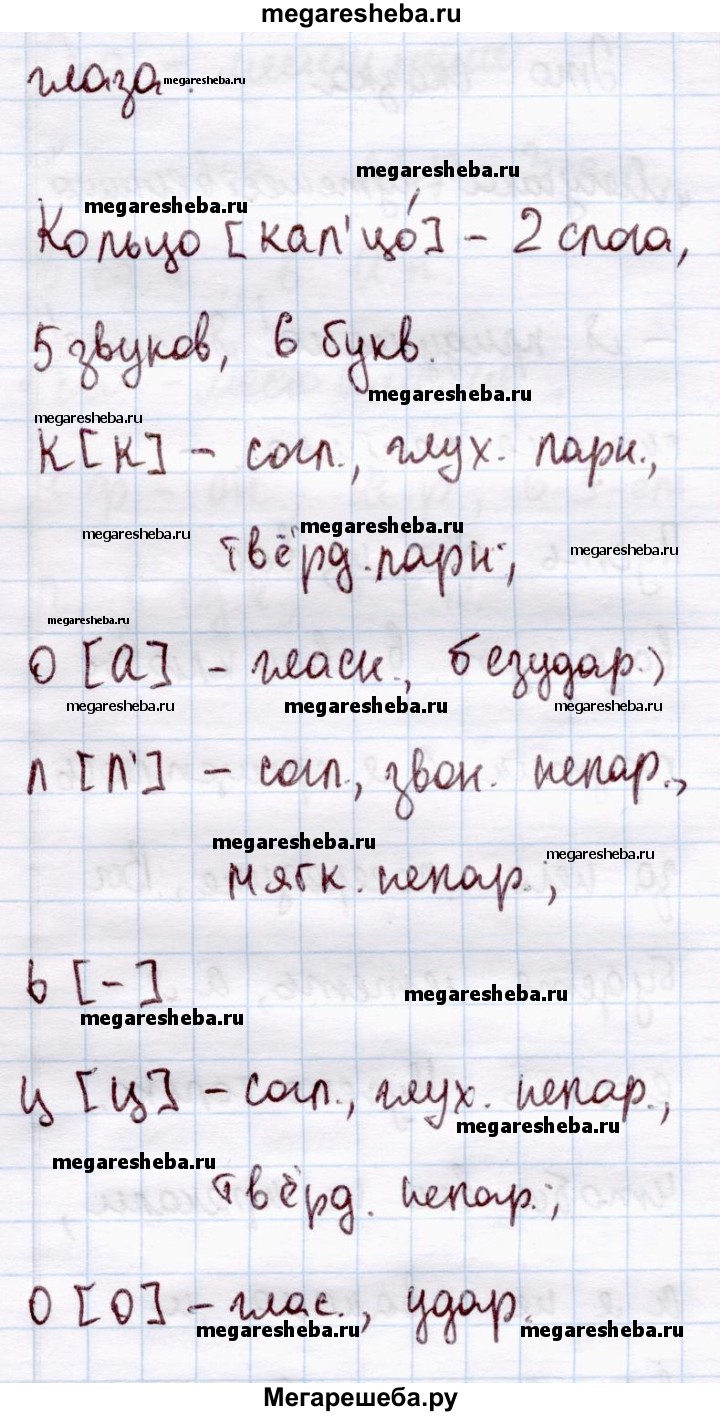 megaresheba.ru
глаза. megaresheba.ru
megaresheba.ru
megaresheba.ru
Кольцо [кал'цо́] – 2 слога,
5 звуков, 6 букв.
megaresheba.ru
megaresheba.ru
К [к] – согл., глух. парн.,
megaresheba.ru megaresheba.ru megaresheba.ru
твёрд. парн.;
megaresheba.ru
О [а] – гласн., безудар.;
megaresheba.ru megaresheba.ru megaresheba.ru
л [л'] – согл., звон. непар.,
megaresheba.ru megaresheba.ru
мягк. непар.;
ь [-] megaresheba.ru
megaresheba.ru
ц [ц] – согл., глух. непар.,
megaresheba.ru
megaresheba.ru
твёрд. непар.;
О [о] – глас., удар.
megaresheba.ru megaresheba.ru
Мегарешеба.ру